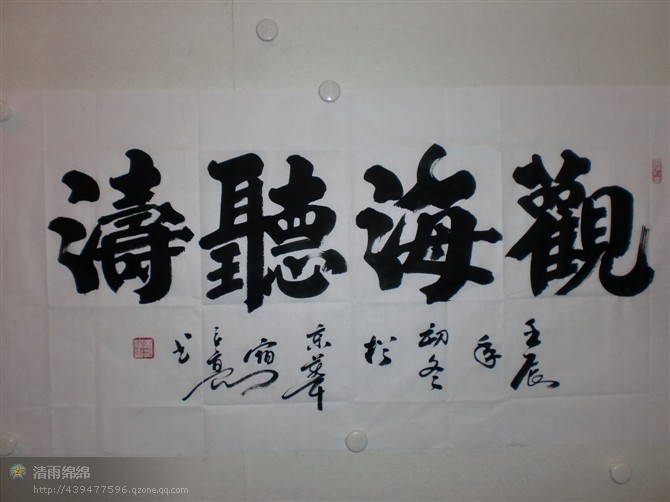 觀海聽濤
壬辰年初冬於京華
清雨绵绵
http://439477596.qzone.qq.com